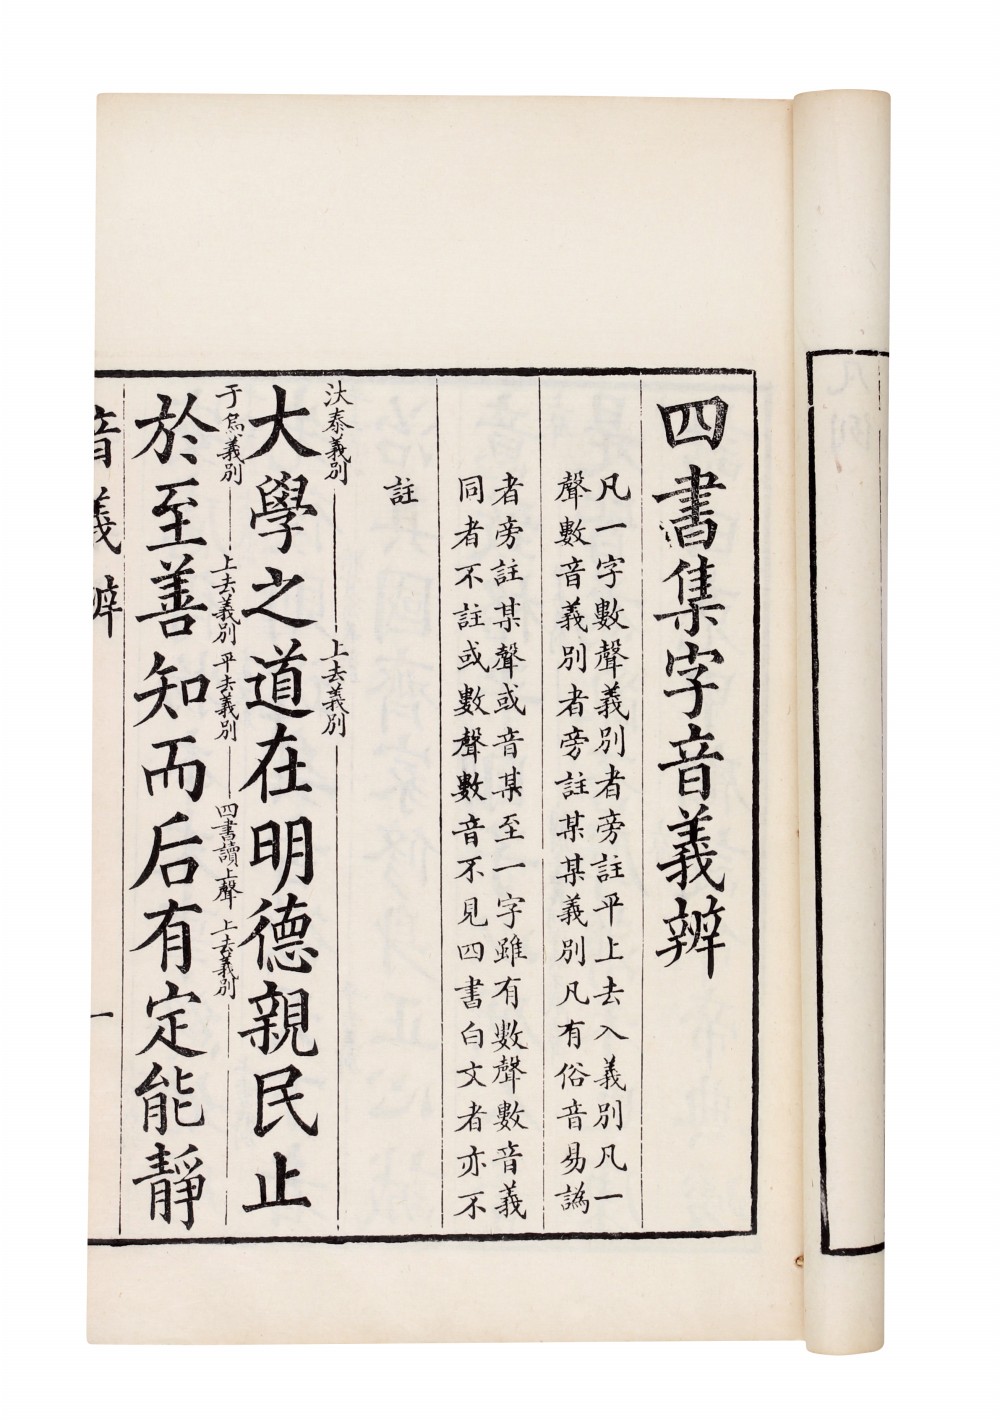 四書集字音義辨
凡一字數聲義別者旁註平上去入義別凡一
聲數音義別者旁註某某義別凡有俗音易譌
者旁註某聲或音某至一字雖有數聲數音義
同者不註或數聲數音不見四書白文者亦不
註
汏泰義別
上去義別
大學之道在明德親民止
于烏義別
上去義別
平去義別
四書讀上聲
上去義別
於至善知而后有定能靜
音義辨
一
凡例